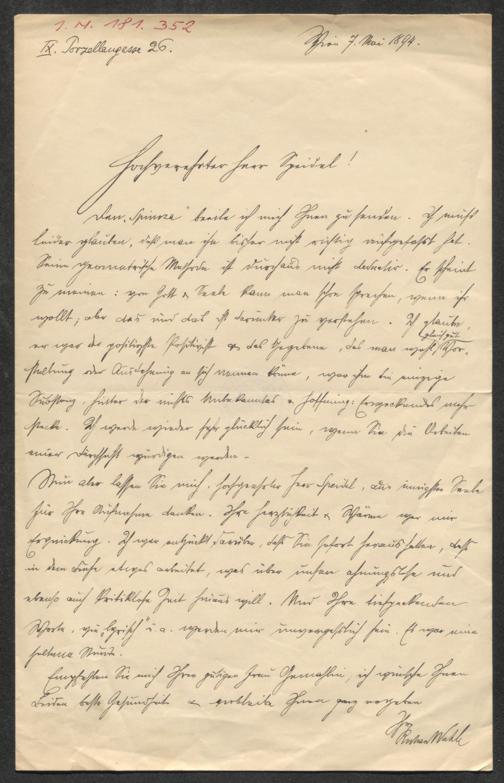 I. N. 181.352
IX. Porzellangasse 26. Wien 7. Mai 1894.
Hochverehrter Herr Speidel!
Den „Spinoza“ beeile ich mich Ihnen zu senden. Ich muß
leider glauben, daß man ihn bisher nicht richtig aufgefaßt hat.
Seine geometrische Methode ist durchaus nicht deductiv. Er scheint
zu meinen: von Gott & Seele kann man schon sprechen, wenn ihr
wollt; aber das und das ist darunter zu verstehen. Ich glaube,
er war der positivste Positivist & das Gegebene, das man wohl, Vor-
stellung oder Ausdehnung an sich nennen könne, war ihm die einzige
Substanz, hinter der nichts Unbekanntes & Hoffnung-Erweckendes mehr
stecke. Ich werde wieder sehr glücklich sein, wenn Sie die Arbeiten
einer Durchsicht würdigen werden. –
Nun aber lassen Sie mich, hochverehrter Herr Speidel, aus innigster Seele
für Ihre Aufnahme danken. Ihre Herzlichkeit & Wärme war mir
Erquickung. Ich war entzückt darüber, daß Sie sofort heraus hatten, daß
in dem Buche etwas arbeitet, was über unsere ahnungslose und
ebenso auch kritiklose Zeit hinaus will. Und Ihre tiefgehenden
Worte, wie „lyrisch“ u. a. werden mir unvergeßlich sein. Es war eine
seltene Stunde.
Empfehlen Sie mich Ihrer gütigen Frau Gemahlin, ich wünsche Ihnen
Beiden beste Gesundheit & verbleibe Ihnen ganz ergeben
Ihr
Richard Wahle